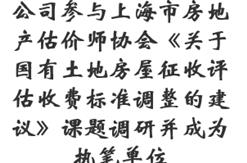 公司参与上海市房地
产估价师协会《关于
国有土地房屋征收评
估收费标准调整的建
议》课题调研并成为
执笔单位